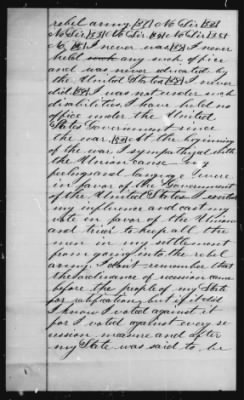 rebel army
No Sir
No Sir
No Sir
No Sir
No I never was I never
held such any such office
and was never educated by
the United States I never
did I was not under such
disabilities. I have held no
office under the United
States Government since
the war. At the beginning
of the war I sympathized with
the Union cause my
feelings and language were
in favor of the Government
of the United States I exerted
my influence and cast my
vote in favor of the Union
and tried to keep all the
men in my settlement
from going into the rebel
army. I dont remember that
the ordinance of secession came
before the people of my State
for ratification but if it did
I know I voted against it
for I voted against every se
cession measure and after
my State was said to be